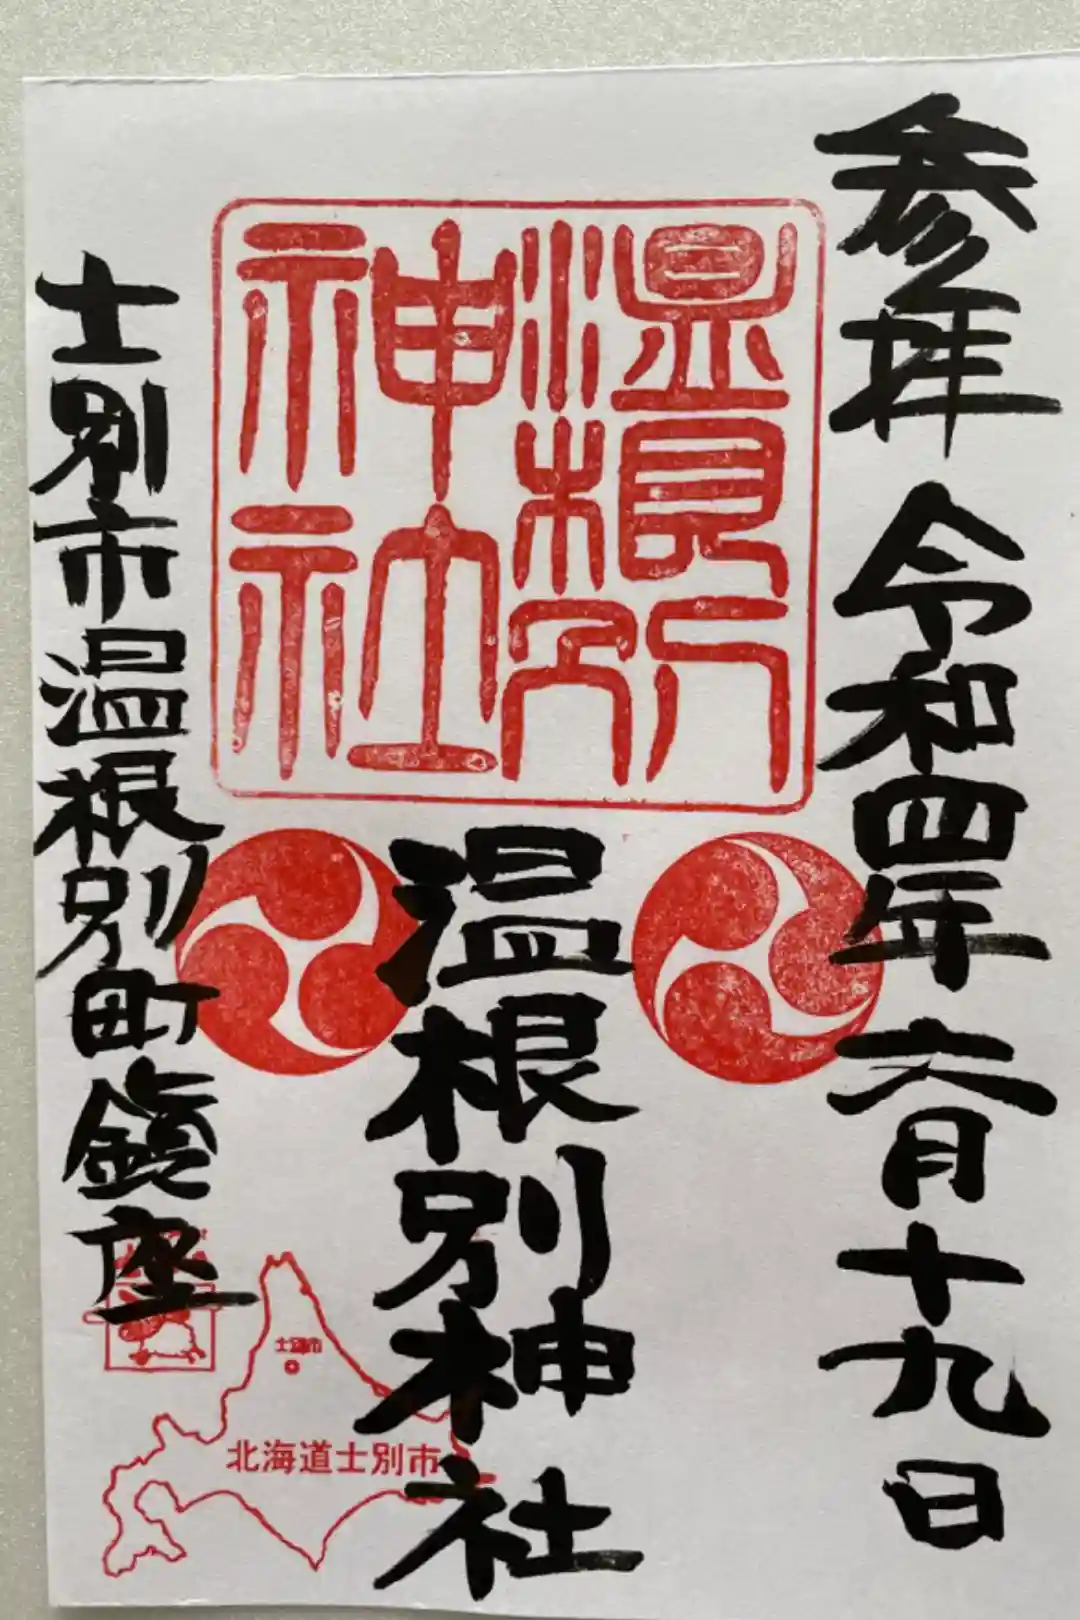 参拝 令和四年 六月十九日
温根別
神社
温根別神社
士別市温根別町鎮座
士別市
北海道士別市